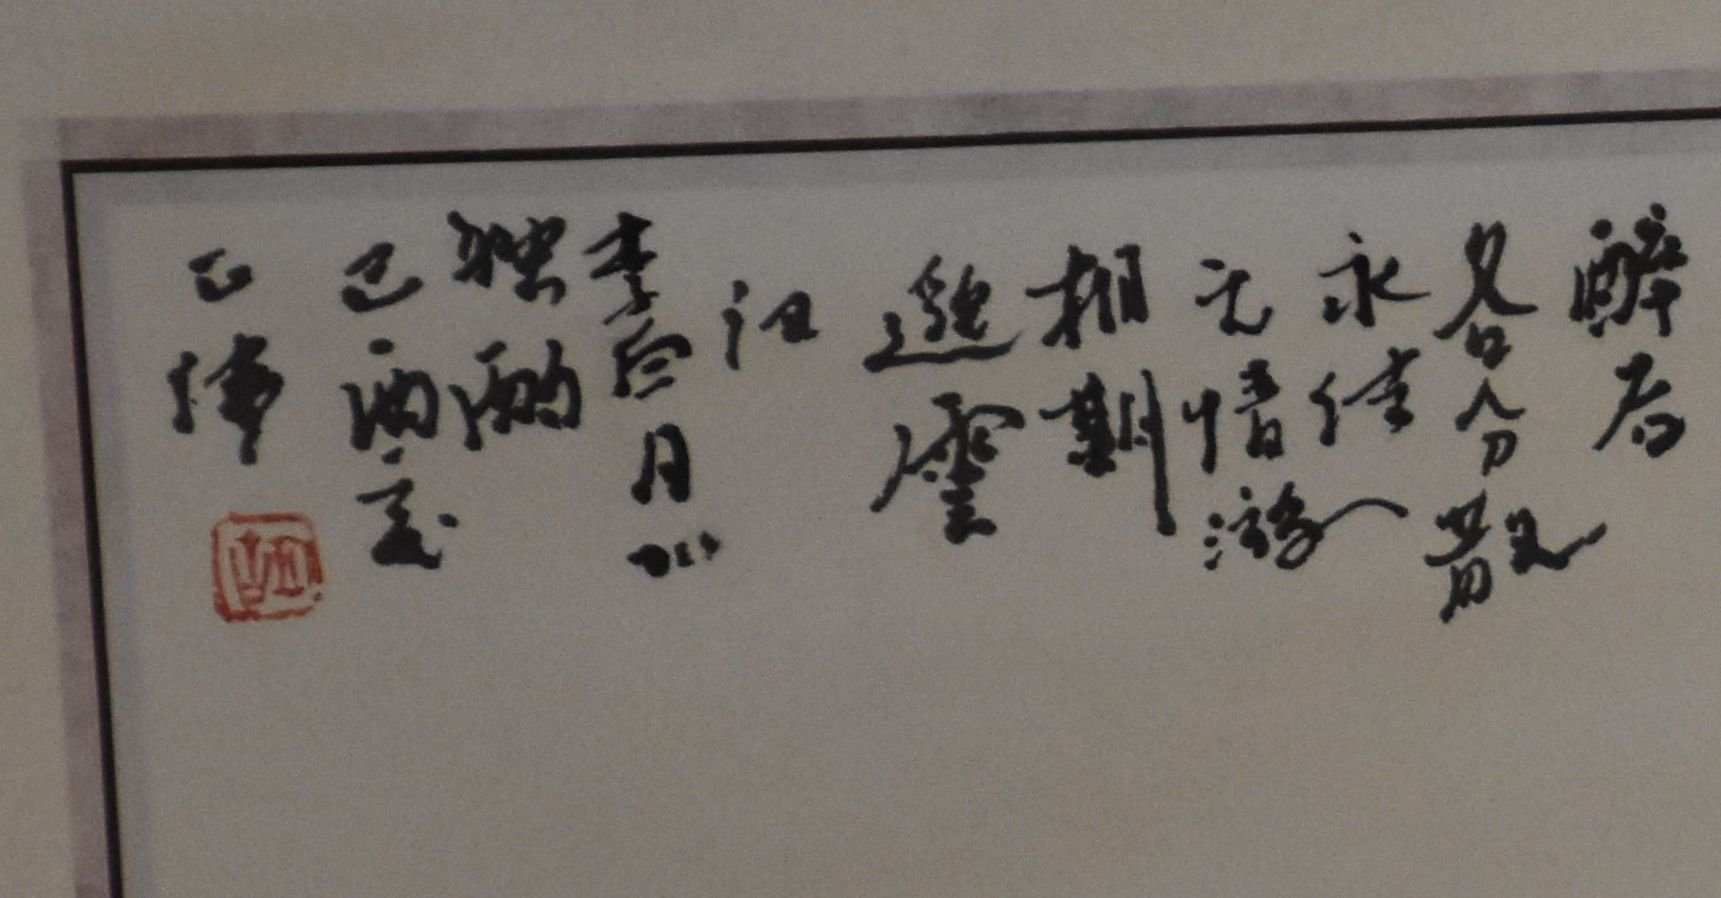 醉后
各分散
永结
无情游
相期
邈云
汉
李白月下
独酌
己酉之